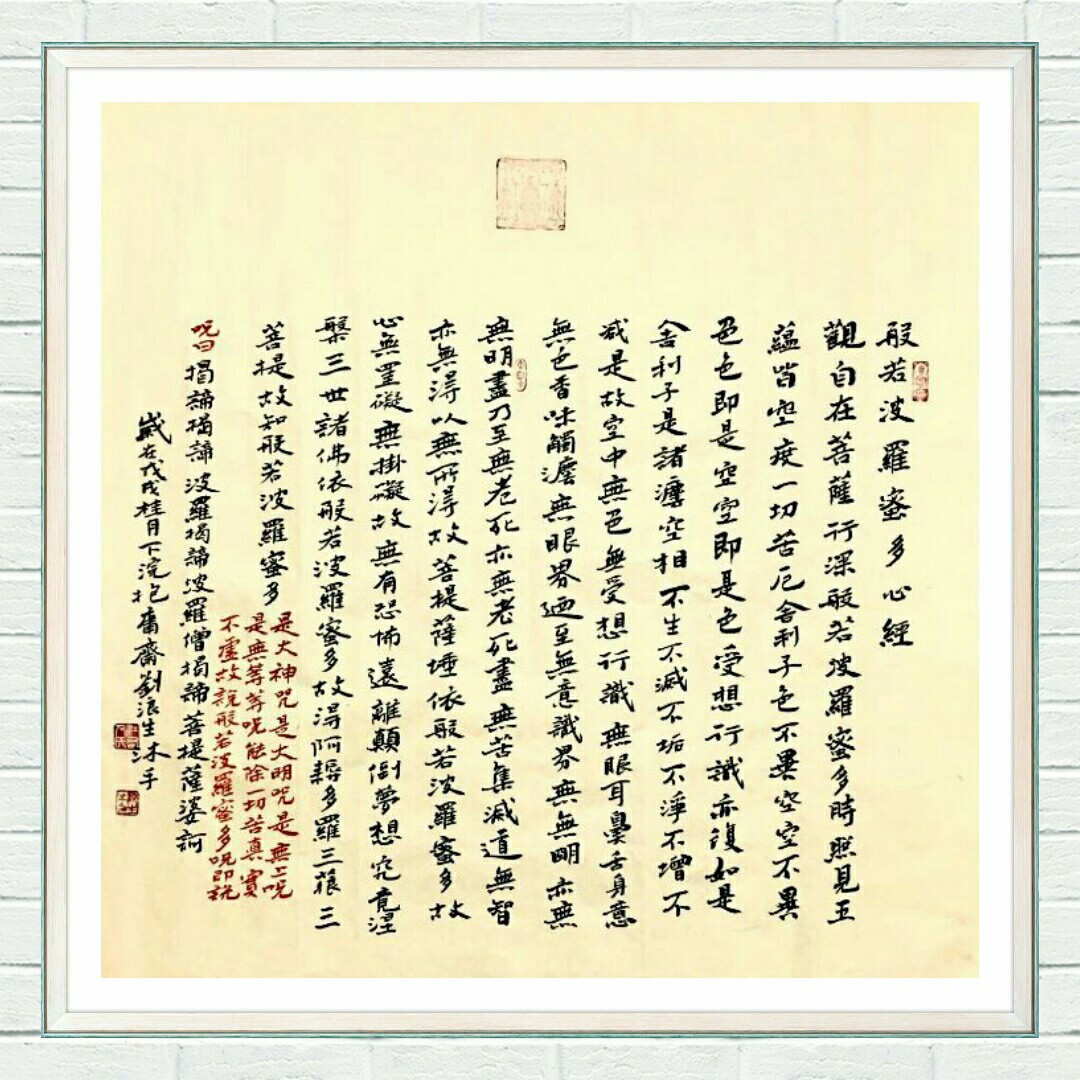 般若波羅蜜多心經
觀自在菩薩行深般若波羅蜜多時照見五
蘊皆空度一切苦厄舍利子色不異空空不異
色色即是空空即是色受想行識亦復如是
舍利子是諸灋空相不生不滅不垢不淨不增不
減是故空中無色無受想行識無眼耳鼻舌身意
無色香味觸灋無眼界迺至無意識界無無明亦無
無明盡乃至無老死亦無老死盡無苦集滅道無智
亦無得以無所得故菩提薩埵依般若波羅蜜多故
心無罣礙無掛礙故無有恐怖遠離顛倒夢想究竟涅
槃三世諸佛依般若波羅蜜多故得阿耨多羅三藐三
菩提故知般若波羅蜜多
是大神咒是大明咒是無上呪
是無等等呪能除一切苦真實
不虛故說般若波羅蜜多呪即說
呪曰揭諦揭諦波羅揭諦波羅僧揭諦菩提薩婆訶
歲在戊戌桂月下浣抱庸齋劉浪生沐手